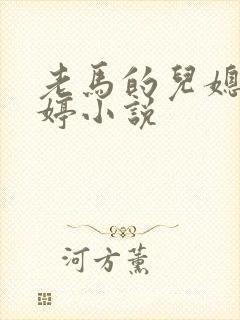 老馬的兒媳
婷小說
河方薰